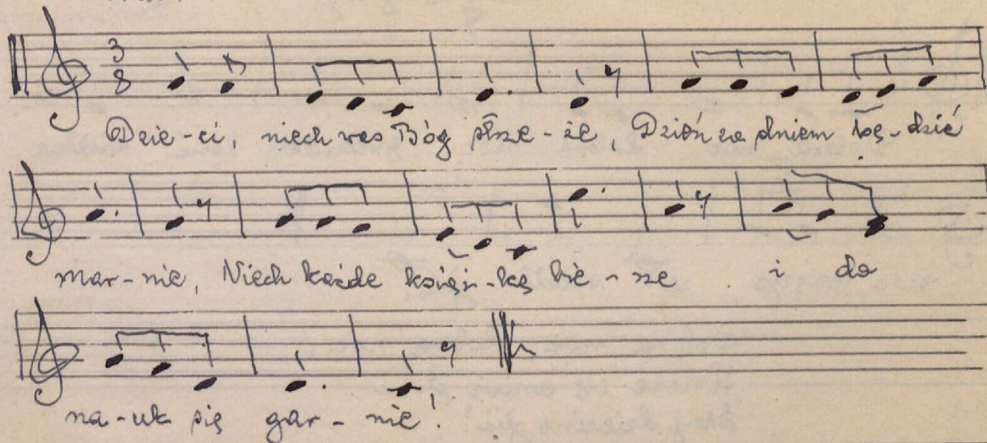 3
8
Dzie-ci, niech was Bóg strze-że, Dzień za dniem bę-dzie
mar-nie, Niech każde książ-kę bie-rze i do
na-uk się gar-nie!